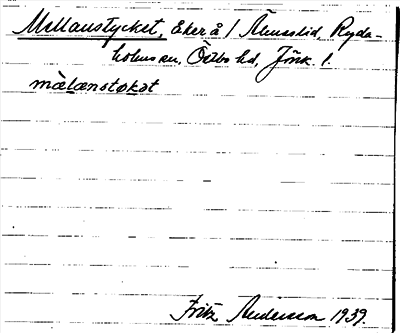 Mellanstycket, åker å / Ämuslid, Ryda-
holms sn, Östbo hd, Jönk. l.
mälanstokət
Fritz Andersson 1939